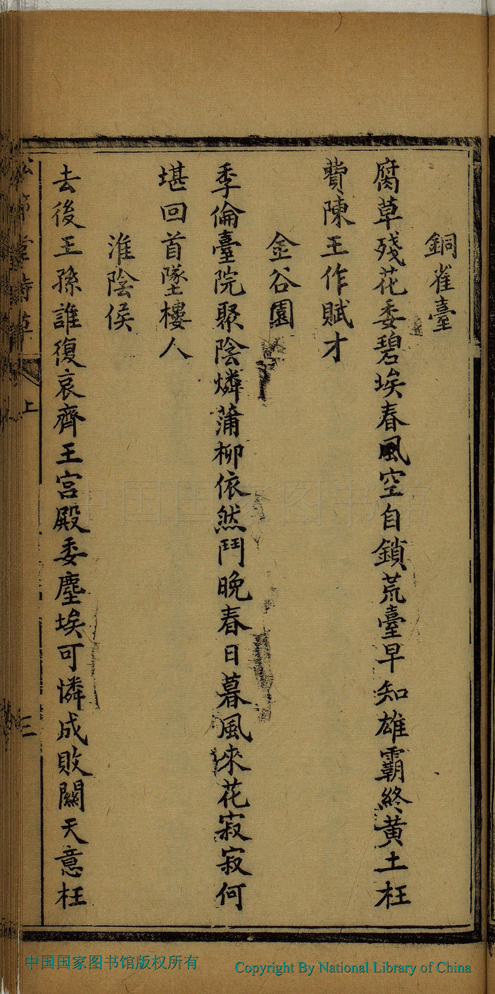 銅雀臺
腐草殘花委碧埃春風空自鎖荒臺早知雄霸終黃土枉
費陳王作賦才
金谷園
季倫臺院聚陰燐蒲柳依然鬥晚春日暮風來花寂寂何
堪回首墜樓人
淮陰侯
去後王孫誰復哀齊王宮殿委塵埃可憐成敗關天意枉
上
三
中国国家图书馆版权所有
Copyright By National Library of China